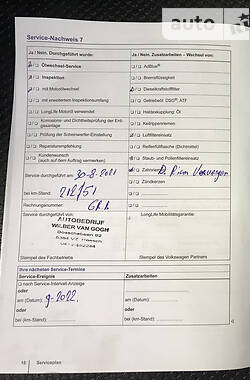 auto
Service-Nachweis 7
Ja / Nein. Durchgeführt wurde:
Ja / Nein. Zusatzarbeiten – Wechsel von:
Ölwechsel-Service
AdBlue®
Inspektion
Bremsflüssigkeit
mit Motorölwechsel
Dieselkraftstofffilter
mit erweitertem Inspektionsumfang
Getriebeöl DSG®, ATF
LongLife Motoröl verwendet
Haldexkupplung Öl
Korrosions- und Dichtheitsprüfung der Erdgasanlage
Keilrippenriemen
Prüfung der Scheinwerfer-Einstellung
Luftfiltereinsatz
Reparaturempfehlung
Reifenfüllflasche (Dichtmittel)
Kundenwunsch
(auch auf dem Auftrag vermerken)
Staub- und Pollenfiltereinsatz
Service durchgeführt am: 30-8-2021
Zahnriemen
Zündkerzen
bei km-Stand:
Rechnungsnummer:
Service durchgeführt von:
LongLife Mobilitätsgarantie:
AUTOBEDRIJF
WILBER VAN GOGH
Stempel des Fachbetriebs
Stempel des Volkswagen Partners
Ihre nächsten Service-Termine
Service-Ereignis
Zusatzarbeiten
nach Service-Intervall-Anzeige
oder
am (Datum): 9-2022
am (Datum):
oder
oder
bei (km-Stand):
bei (km-Stand):
Serviceplan